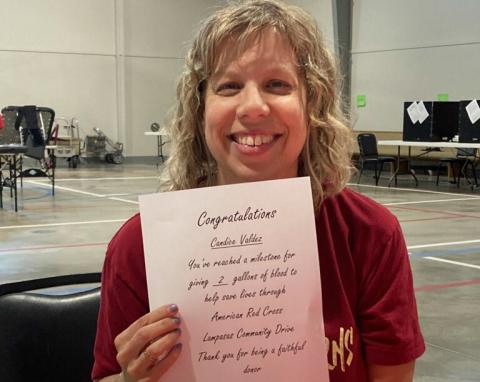 Congratulations
Candice Valdez
You've reached a milestone for
giving 2 gallons of blood to
help save lives through
American Red Cross
Lampasas Community Drive
Thank you for being a faithful
donor